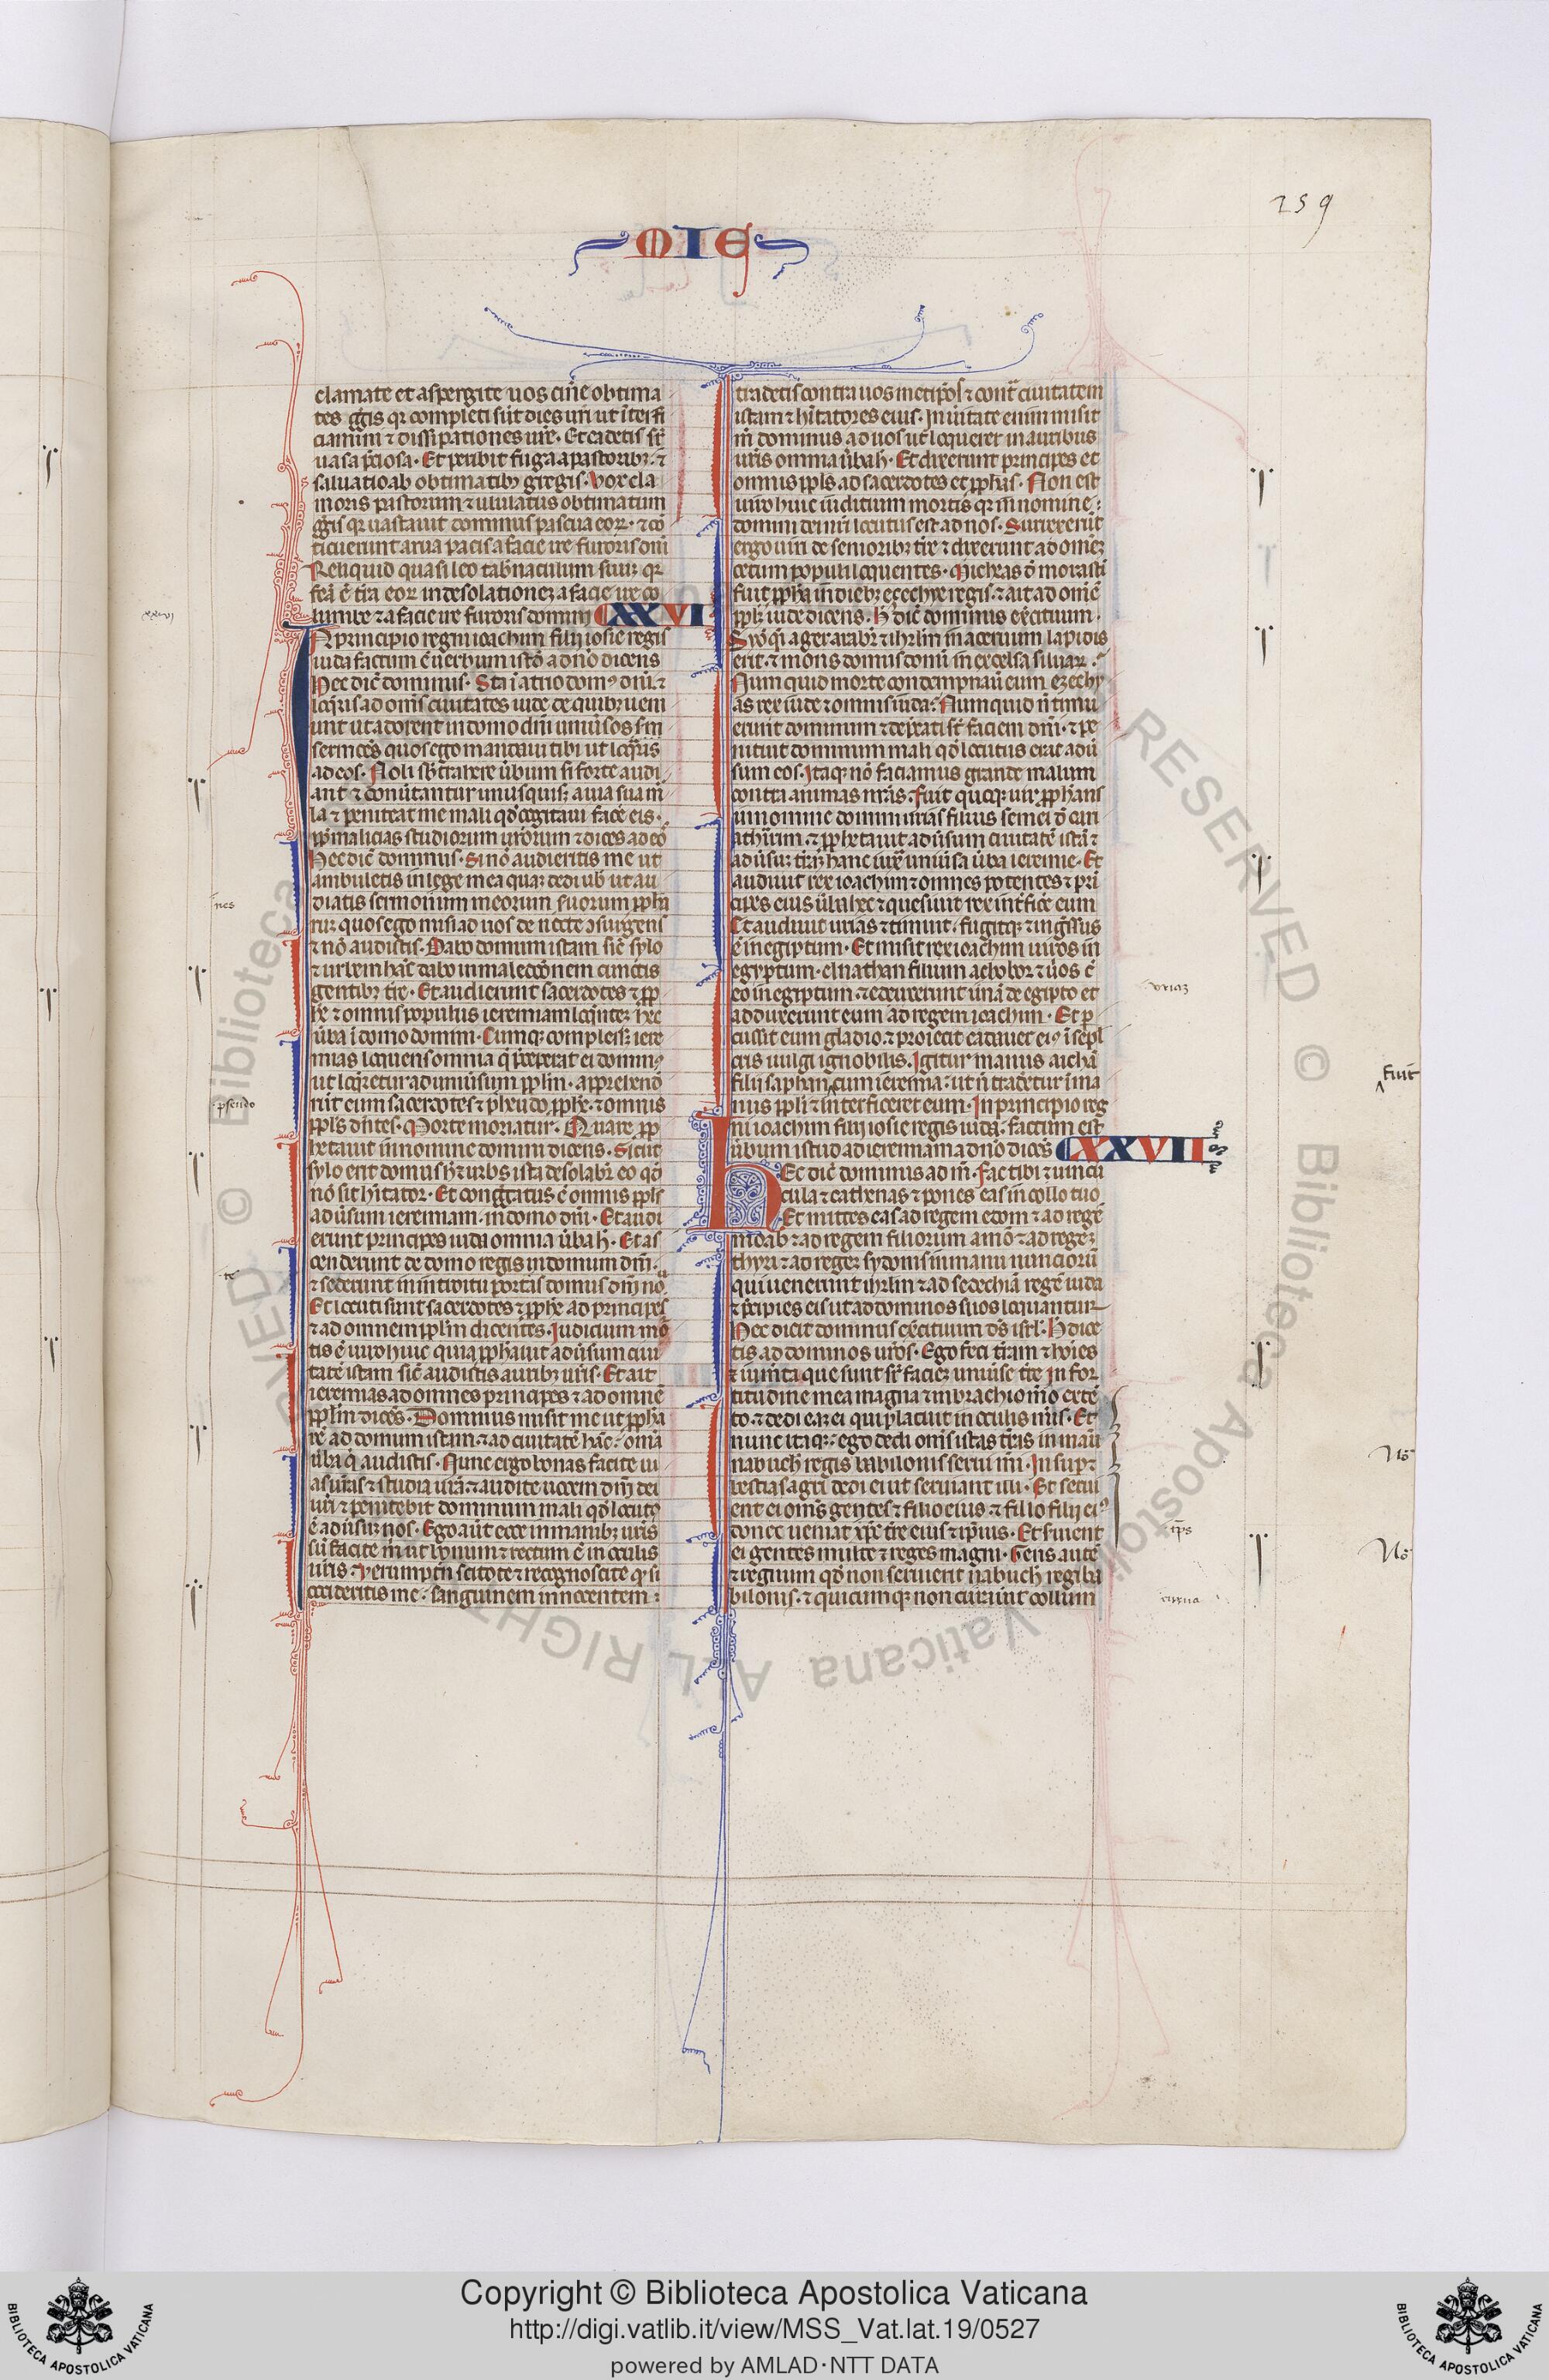 259
MIE
clamate et aspergite uos cine᷑ obtima
tes gͥgis qꝛ completi sūt dies ur̄i ut īterfi
ciamini ⁊ dissipationes ur̄e. Et cadetis sͥ
uasa p̄ciosa. Et peribit fuga a pastoribꝫ. ⁊
saluatio ab obtimatibꝫ gregis. Vox cla
moris pastorum ⁊ ululatus obtimatum
gͥgis qꝛ uastauit dominus pascua eoꝝ. ⁊ cō
ticuerunt arua pacis a facie ire furoris dn̄i
Reliquid quasi leo tabn̄aculum suuꝫ qꝛ
fc̄a ē tr̄a eoꝝ in desolationeꝫ a facie ire co
lumbe ⁊ a facie ire furoris domini XXVI
IN principio regni ioachim filij iosie regis
iuda factum ē uerbum istd̄ a dn̄o dicens
Hec dic̄ dominus. Sta ī atrio domꝰ dn̄i. ⁊
loq̄ris ad om̄s ciuitates iude de quibꝫ ueni
unt ut adorent in domo dn̄i uniu᷑sos s̄m
sermōes quos ego mandaui tibi ut loq̄ris
ad eos. Noli sb̄trahere u᷑bum si forte audi
ant ⁊ conu᷑tantur unusquisꝫ a uia sua ma
la ⁊ peniteat me mali qd̄ cogitaui face᷑ eis.
ꝓpt̄ malicias studiorum ur̄orum ⁊ dices ad eos
Hec dic̄ dominus. Si nō audieritis me ut
ambuletis in lege mea quaꝫ dedi uob̄ ut au
diatis sermonum meorum suorum ꝓpha
ruꝫ quos ego misi ad uos de nocte ɔsurgens
⁊ nō audistis. Dabo domum istam sic̄ sylo
⁊ urbem hāc dabo in maledcōnem cunctis
gentibꝫ tr̄e. Et audierunt sacerdotes ⁊ ꝓp
he ⁊ omnis populus ieremiam loq̄nteꝫ hec
u᷑ba ī domo domini. Cumqꝫ complesseꝫ iere
mias loquens omnia q̄ p̄ceperat ei dominꝰ
ut loq̄retur ad uniu᷑sum ppl̄m. apprehend̄e
rūt eum sacerdotes ⁊ pseudo ꝓphe. ⁊ omnis
ppl̄s dn̄tes. Morte moriatur. Quare ꝓp
hetauit in nomine domini dicens. Sicut
sylo erit domus h̄ ⁊ urbs ista desolabr̄ eo qd̄
nō sit hītator. Et congͥgatus ē omnis ppl̄s
adu᷑sum ieremiam in domo dn̄i. Et audi
erunt principes iuda omnia u᷑ba h̄. Et as
cenderunt de domo regis in domum dn̄i.
⁊ sederunt in introitu portas domus dn̄i noͣ
Et locuti sunt sacerdotes ⁊ ꝓphe ad principes
⁊ ad omnem ppl̄m dicentes. Judicium mor
tis ē uiro huic quia ꝓphauit adu᷑sum ciui
tatē istam sic̄ audistis auribꝫ ur̄is. Et ait
ieremias ad omnes principes ⁊ ad omnē
ppl̄m dicēs. Dominus misit me ut ꝓpha
rē ad domum istam ⁊ ad ciuitatē hāc. om̄a
u᷑ba q̄ audistis. Nunc ergo bonas facite ui
as ur̄as ⁊ studia ur̄a. ⁊ audite uocem dn̄i dei
ur̄i ⁊ penitebit dominum mali qd̄ locutꝰ
ē adu᷑suꝫ uos. Ego aūt ecce in manibꝫ ur̄is
sū facite m̄ ut bonum ⁊ rectum ē in oculis
ur̄is. Verumptn̄ scitote ⁊ recognoscite qꝫ si
occideritis me. sanguinem innocentem.
tradetis contra uos metipōs ⁊ contᷓ ciuitatem
istam ⁊ hītatores eius. In u᷑itate enim misit
m̄ dominus ad uos ut loquerer in auribus
ur̄is omnia u᷑ba h̄. Et dixerunt principes et
omnis ppl̄s ad sacerdotes et ꝓphas. Non est
uiro huic iuditium mortis qꝛ in nomine
domini dei nr̄i locutus est ad nos. Surrexerūt
ergo uiri de senioribꝫ tr̄e ⁊ dixerunt ad omneꝫ
cetum populi loquentes. Micheas d̄ morasti
fuit ꝓpha in diebꝫ ezechye regis. ⁊ ait ad omnē
ppl̄ꝫ iude dicens. H̄ dic̄ dominus ex̄cituum.
Syon q̄i ager arabr̄ ⁊ ihrl̄m in aceruum lapidis
erit. ⁊ mons domus domini in excelsa siluaꝝ.
Numquid morte condempnauit eum ezechy
as rex iude ⁊ omnis iuda. Numquid n̄ timu
erunt dominum ⁊ dep̄cati sͥ faciem dn̄i. ⁊ pe
nituit dominum mali qd̄ locutus erat adu᷑
sum eos. Itaqꝫ nō faciamus grande malum
contra animas nr̄as. Fuit quoqꝫ uir ꝓphans
in nomine domini urias filius semei d̄ cari
athiarim. ⁊ ꝓphetauit adu᷑sum ciuitatē istā ⁊
adu᷑suꝫ tr̄aꝫ hanc iuxᷓ uniu᷑sa u᷑ba ieremie. Et
audiuit rex ioachim ⁊ omnes potentes ⁊ pri
cipes eius u᷑ba hec ⁊ quesiuit rex int̄fice᷑ eum
Et audiuit urias ⁊ timuit. fugitqꝫ ⁊ ingͥssus
ē in egiptum. Et misit rex ioachim uiros in
egyptum. elnathan filium achobor ⁊ uiros cū
eo in egiptum. ⁊ eduxerunt uriā de egipto et
adduxerunt eum ad regem ioachim. Et p̄
cussit eum gladio. ⁊ proiecit cadauer eiꝰ ī sepl̄
cris uulgi ignobilis. Igitur manus aicham
filij saphan cum ieremia. ut n̄ traderetur ī ma
nus ppl̄i ⁊ interficeret eum. In principio reg
ni ioachim filij iosie regis iuda. factum est
u᷑bum istud ad ieremiam a dn̄o dicēs XXVII
Hec dic̄ dominus ad m̄. Fac tibi ⁊ uincu
cula ⁊ cathenas ⁊ pones eas in collo tuo
Et mittes eas ad regem edom ⁊ ad regē
moab ⁊ ad regem filiorum amō ⁊ ad regeꝫ
thyri ⁊ ad regeꝫ sydonis in manu nunciorū
qui uenerunt ihrl̄m ⁊ ad sedechiā regē iuda
⁊ p̄cipies eis ut ad dominos suos loquantur
Hec dicit dominus ex̄cituum ds̄ isrl̄. H̄ dice
tis ad dominos ur̄os. Ego feci tr̄am ⁊ hōies
⁊ iumēta que sunt sͥ facieꝫ uniu᷑se tr̄e in for
titudine mea magna ⁊ in brachio meo extē
to. ⁊ dedi eaꝫ ei qui placuit in oculis meis. Et
nunc itaqꝫ ego dedi om̄s istas tr̄as in manu
nabuch̄ regis babilonis serui mei. In supꝫ ⁊
bestias agri dedi ei ut seruiant illi. Et serui
ent ei om̄s gentes ⁊ filio eius. ⁊ filio filij eiꝰ
donec ueniat tp̄s tr̄e eius ⁊ ip̄ius. Et seruient
ei gentes multe ⁊ reges magni. Gens autē
⁊ regnum qd̄ non seruierit nabuch̄ regi ba
bilonis. ⁊ quicumqꝫ non curauit collum
xxvi
nes
pseudo
te
uriaꝫ
fuit
No
tp̄s
No
Copyright © Biblioteca Apostolica Vaticana
http://digi.vatlib.it/view/MSS_Vat.lat.19/0527
powered by AMLAD·NTT DATA
BIBLIOTECA APOSTOLICA VATICANA
BIBLIOTECA APOSTOLICA VATICANA
© Biblioteca Apostolica Vaticana ALL RIGHTS RESERVED